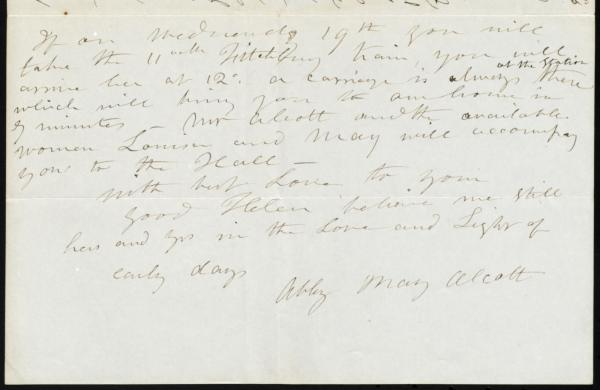 If on Wednesday 19th you will
take the 11 o'clk Fitchburg train, you will
at the station
arrive her at 12°. a carriage is always there
which will bring you to our home in
5 minutes - Mr Alcott and the available
women Louisa and May will accompany
you to the Hall -
with best Love to your
good Helen believe me still
hers and yrs in the Love and Light of
early days
Abby May Alcott